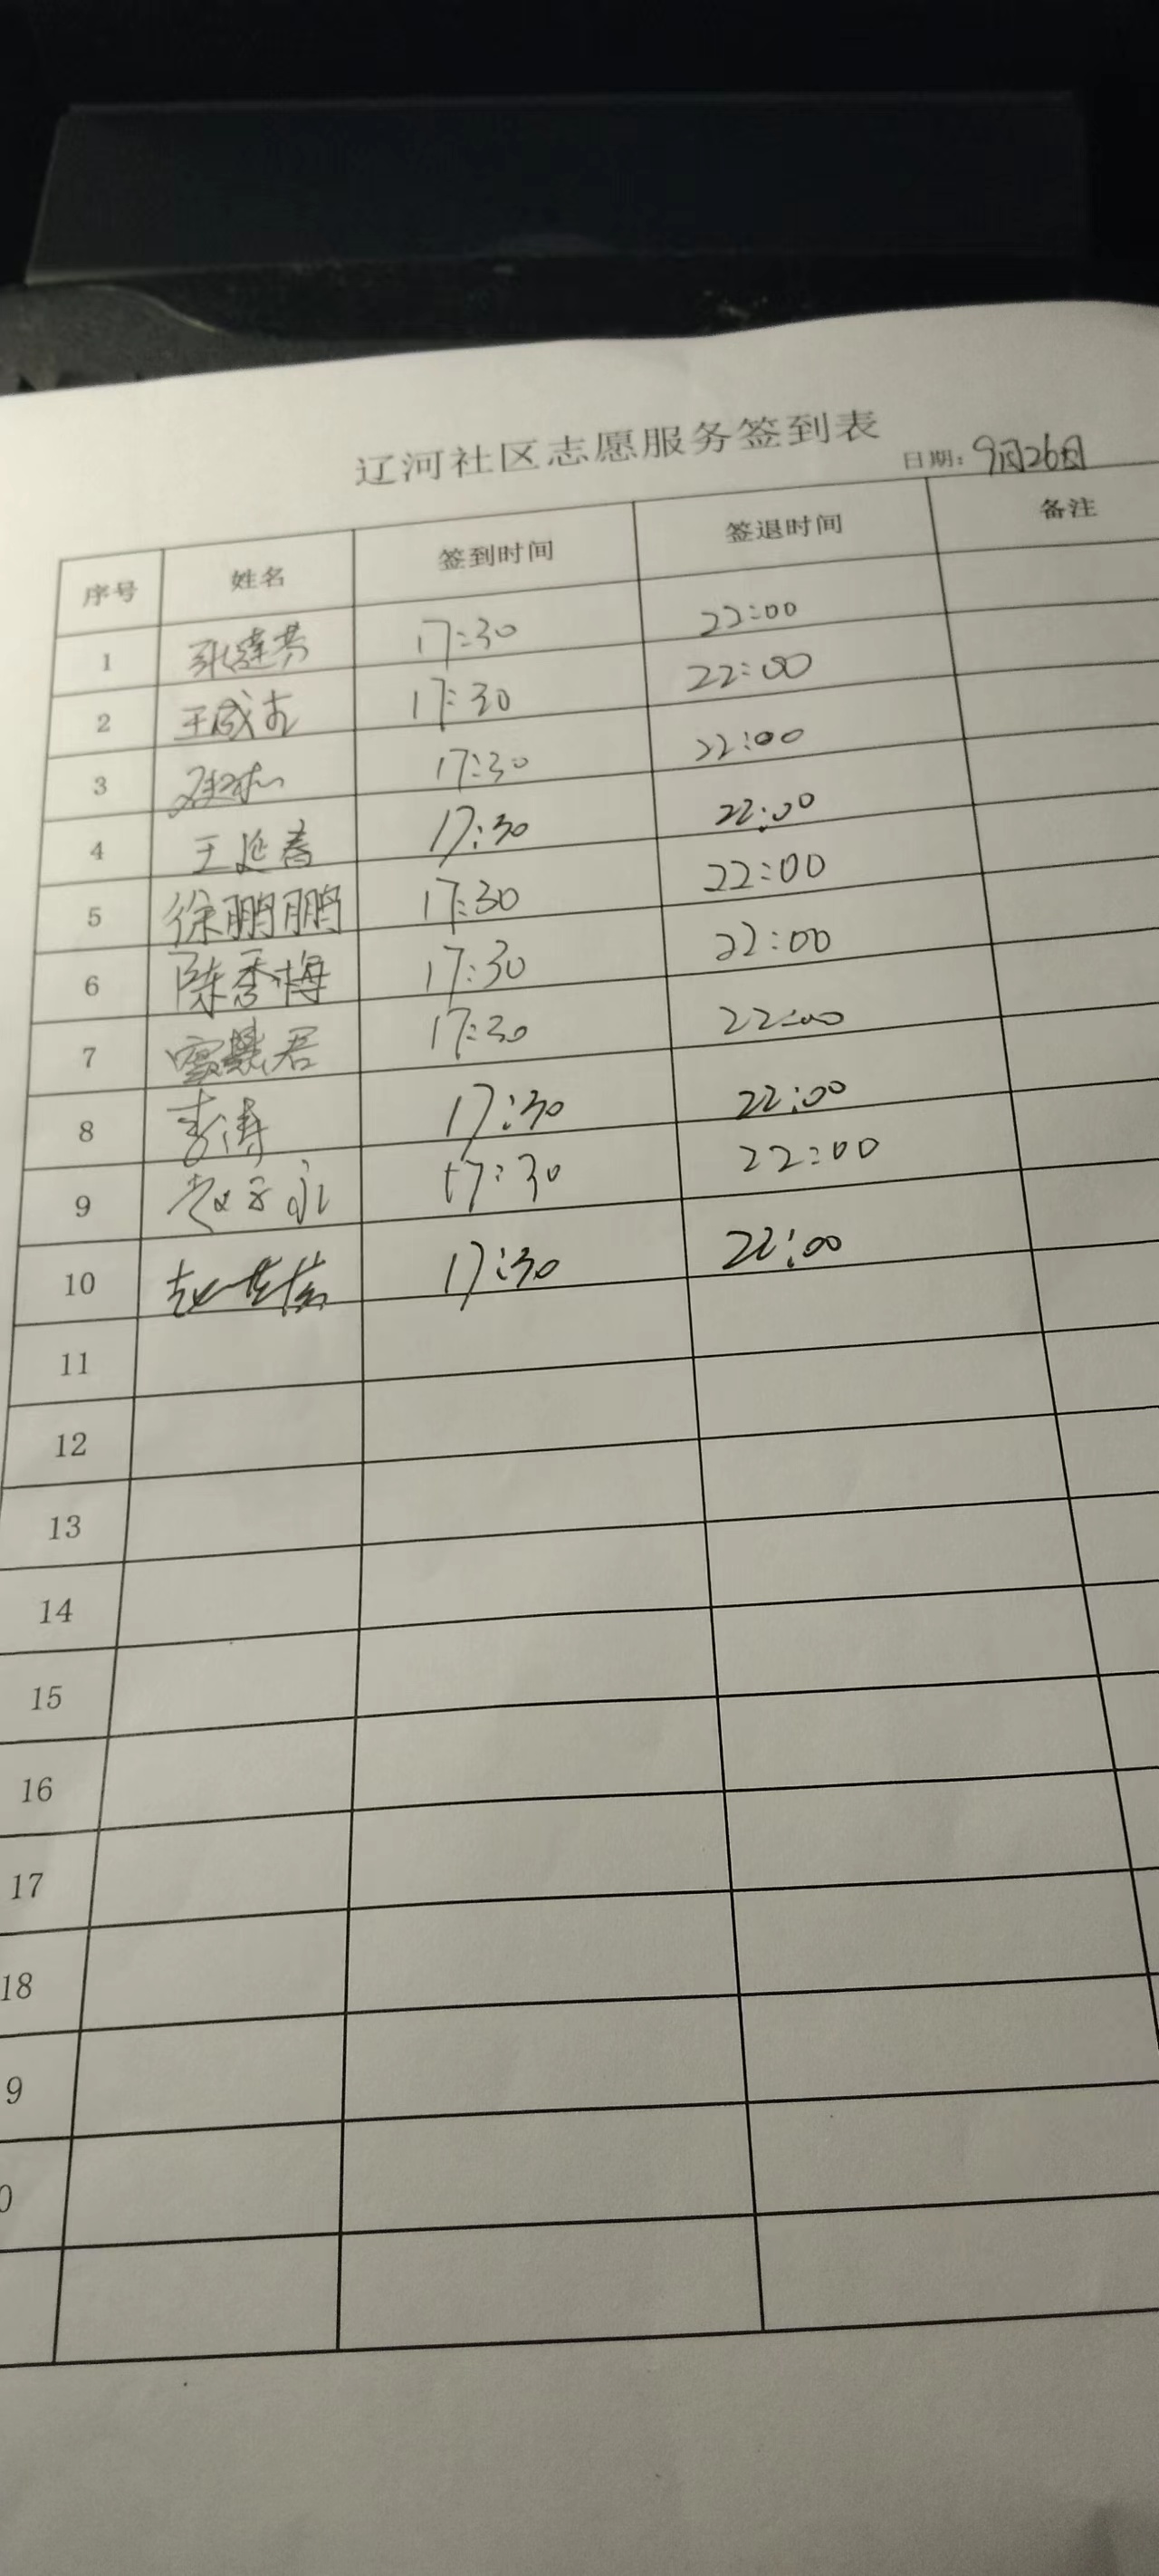 辽河社区志愿服务签到表
日期：9月26日
序号 姓名 签到时间 签退时间 备注
1 17:30 22:00
2 17:30 22:00
3 17:30 22:00
4 王延春 17:30 22:00
5 徐鹏鹏 17:30 22:00
6 陈秀梅 17:30 22:00
7 17:30 22:00
8 李涛 17:30 22:00
9 赵子永 17:30 22:00
10 17:30 22:00
11
12
13
14
15
16
17
18
9
0